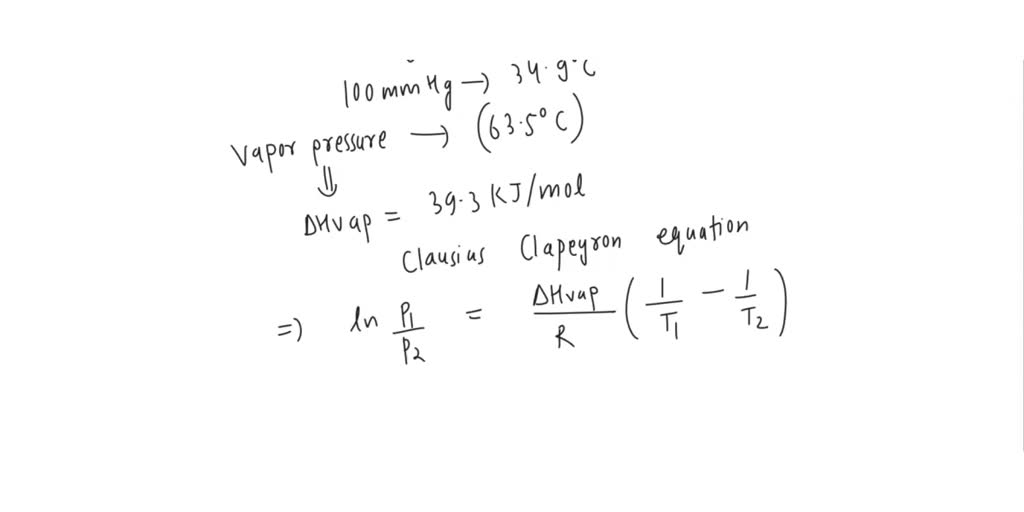 100 mm Hg → 34.9°C
Vapor pressure → (63.5°C)
⇓
ΔHvap = 39.3 KJ/mol
Clausius Clapeyron equation
=) ln P1/P2 = ΔHvap/R (1/T1 - 1/T2)